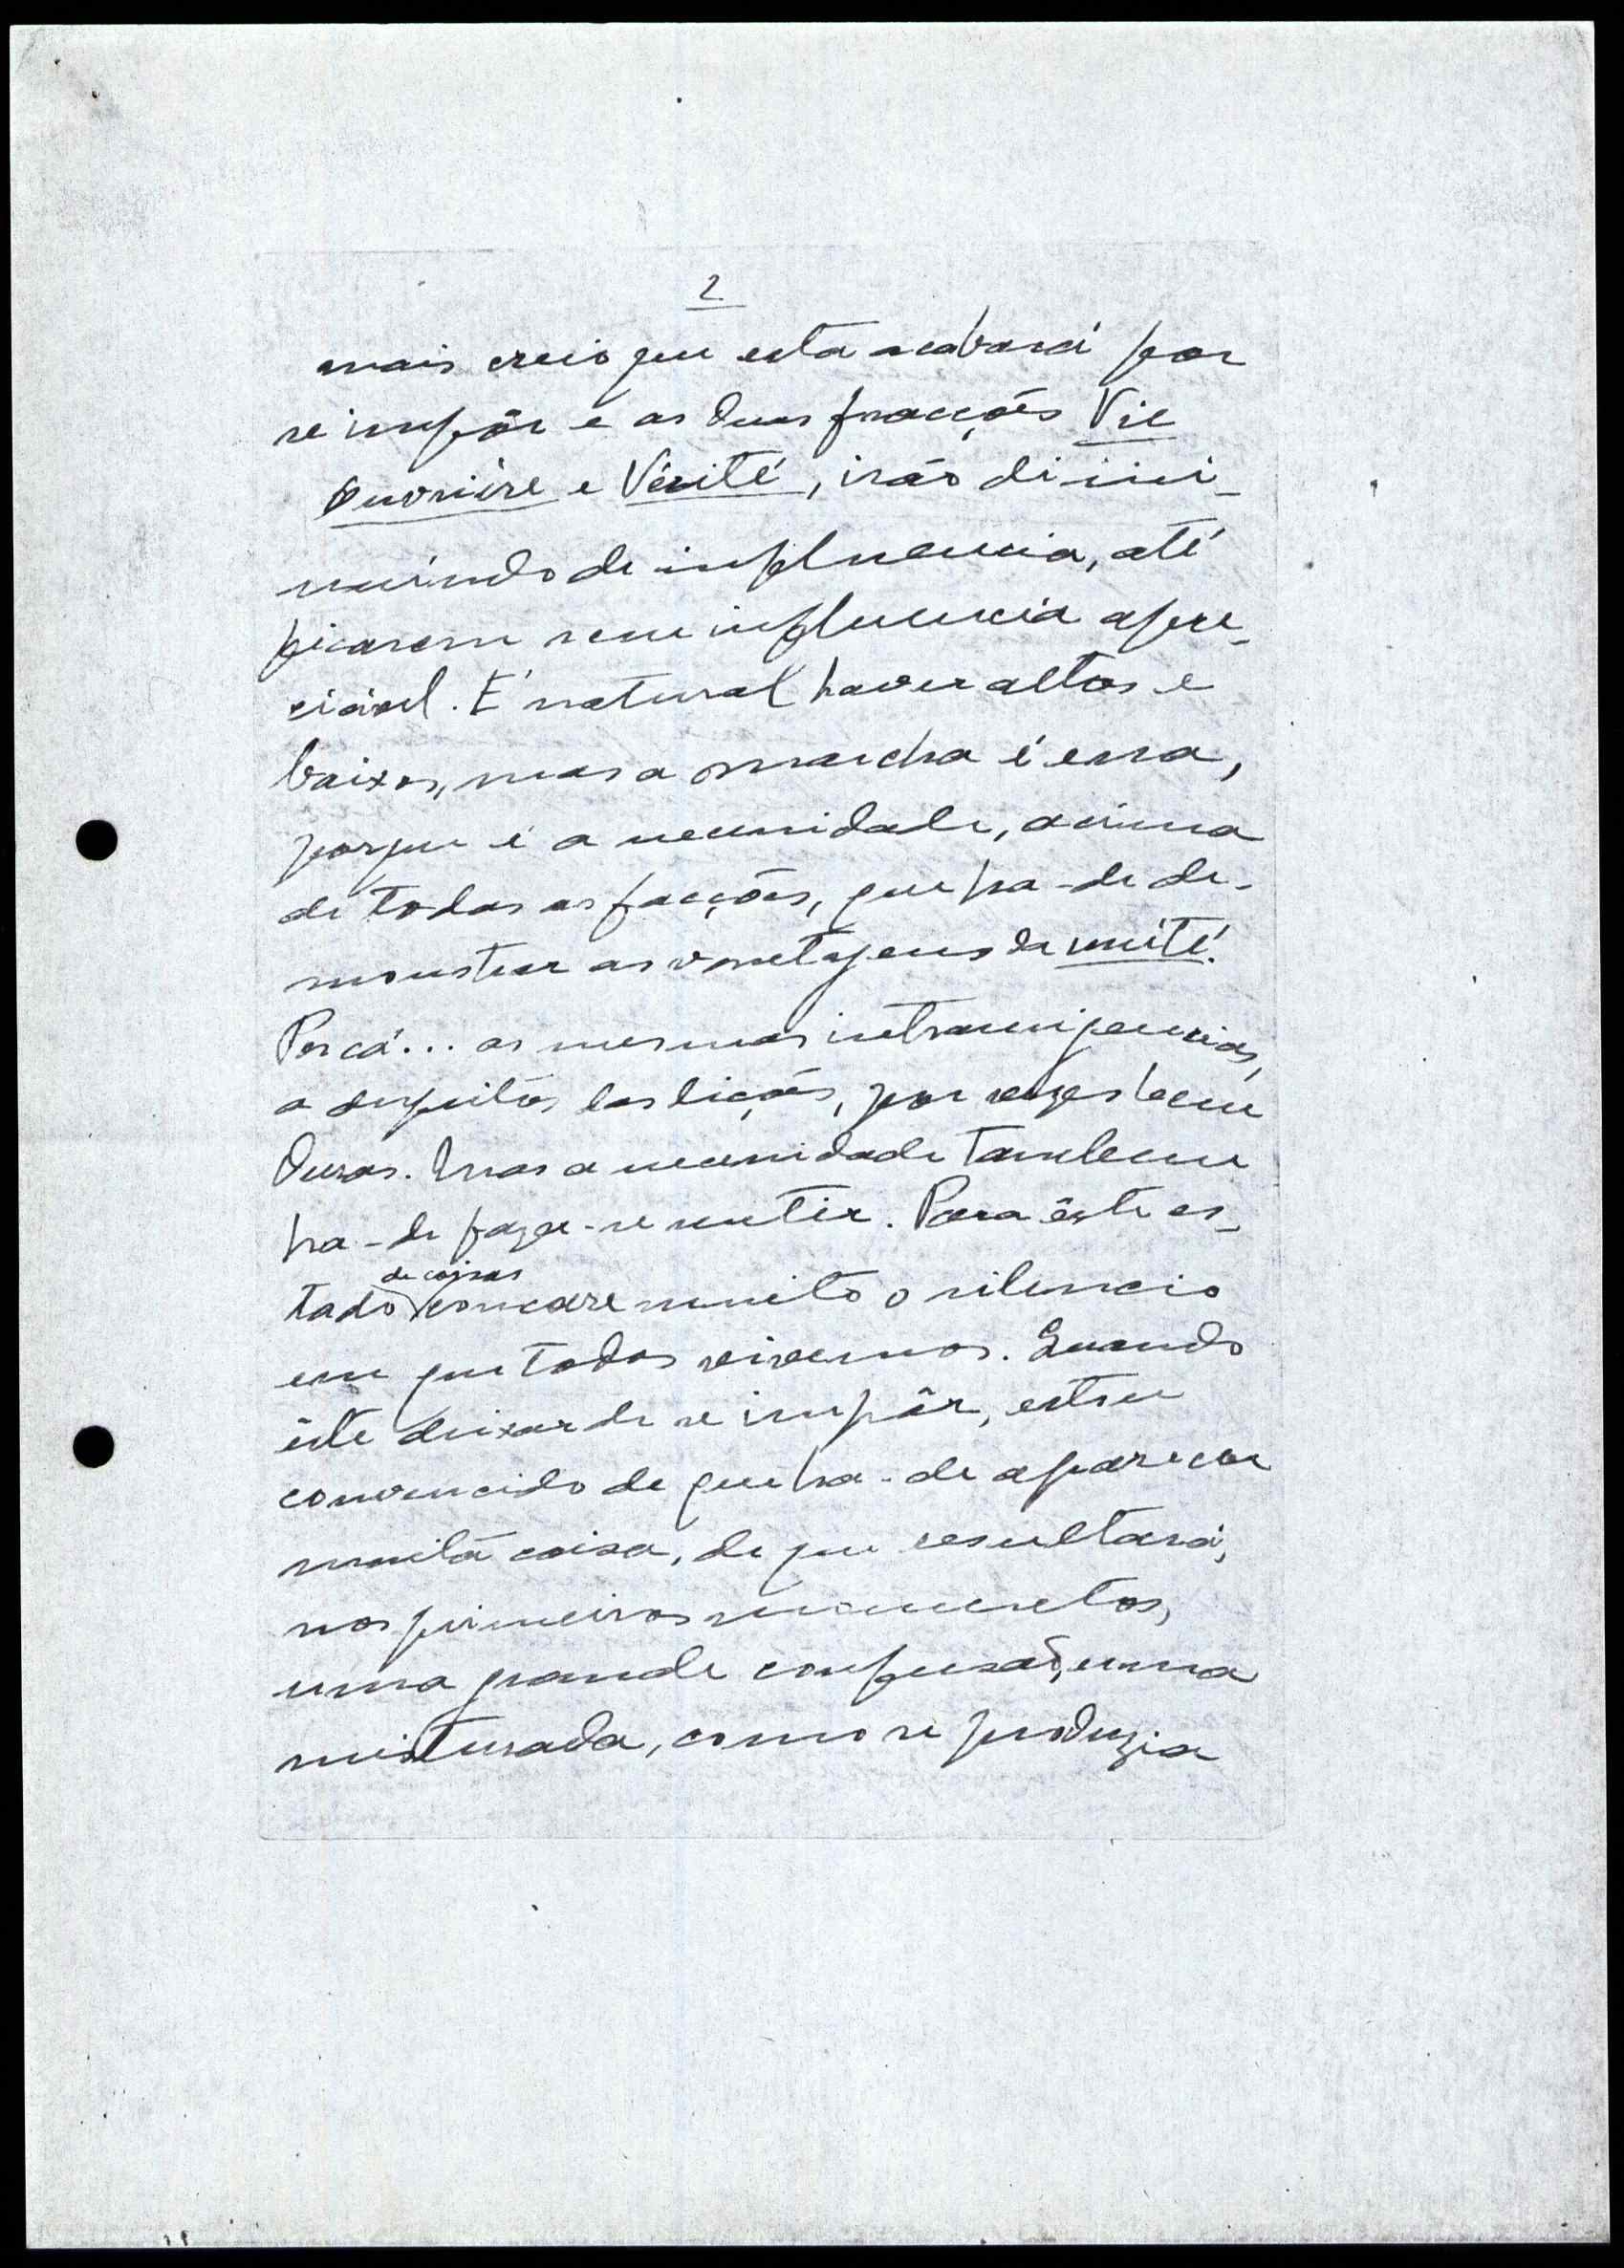 2
mais creio que esta acabará por
se impôr e as duas fracções Vie
Ouvrière e Vérité, irão dimi-
nuíndo de influencia, até
ficarem sem influencia apre-
ciável. É natural haver altos e
baixos, mas a marcha é essa,
porque é a necessidade, acima
de todas as facções, que ha-de de-
monstrar as vantagens da unité.
Por cá... as mesmas intransigencias,
a despeito das lições, por vezes bem
duras. Mas a necessidade tambem
ha-de fazer-se sentir. Para êste es-
de coisas
tado concorre muito o silencio
em que todos vivemos. Quando
êste deixar de se impôr, estou
convencido de que ha-de aparecer
muita coisa, de que resultará,
nos primeiros momentos,
uma grande confusão, uma
misturada, como se produzia